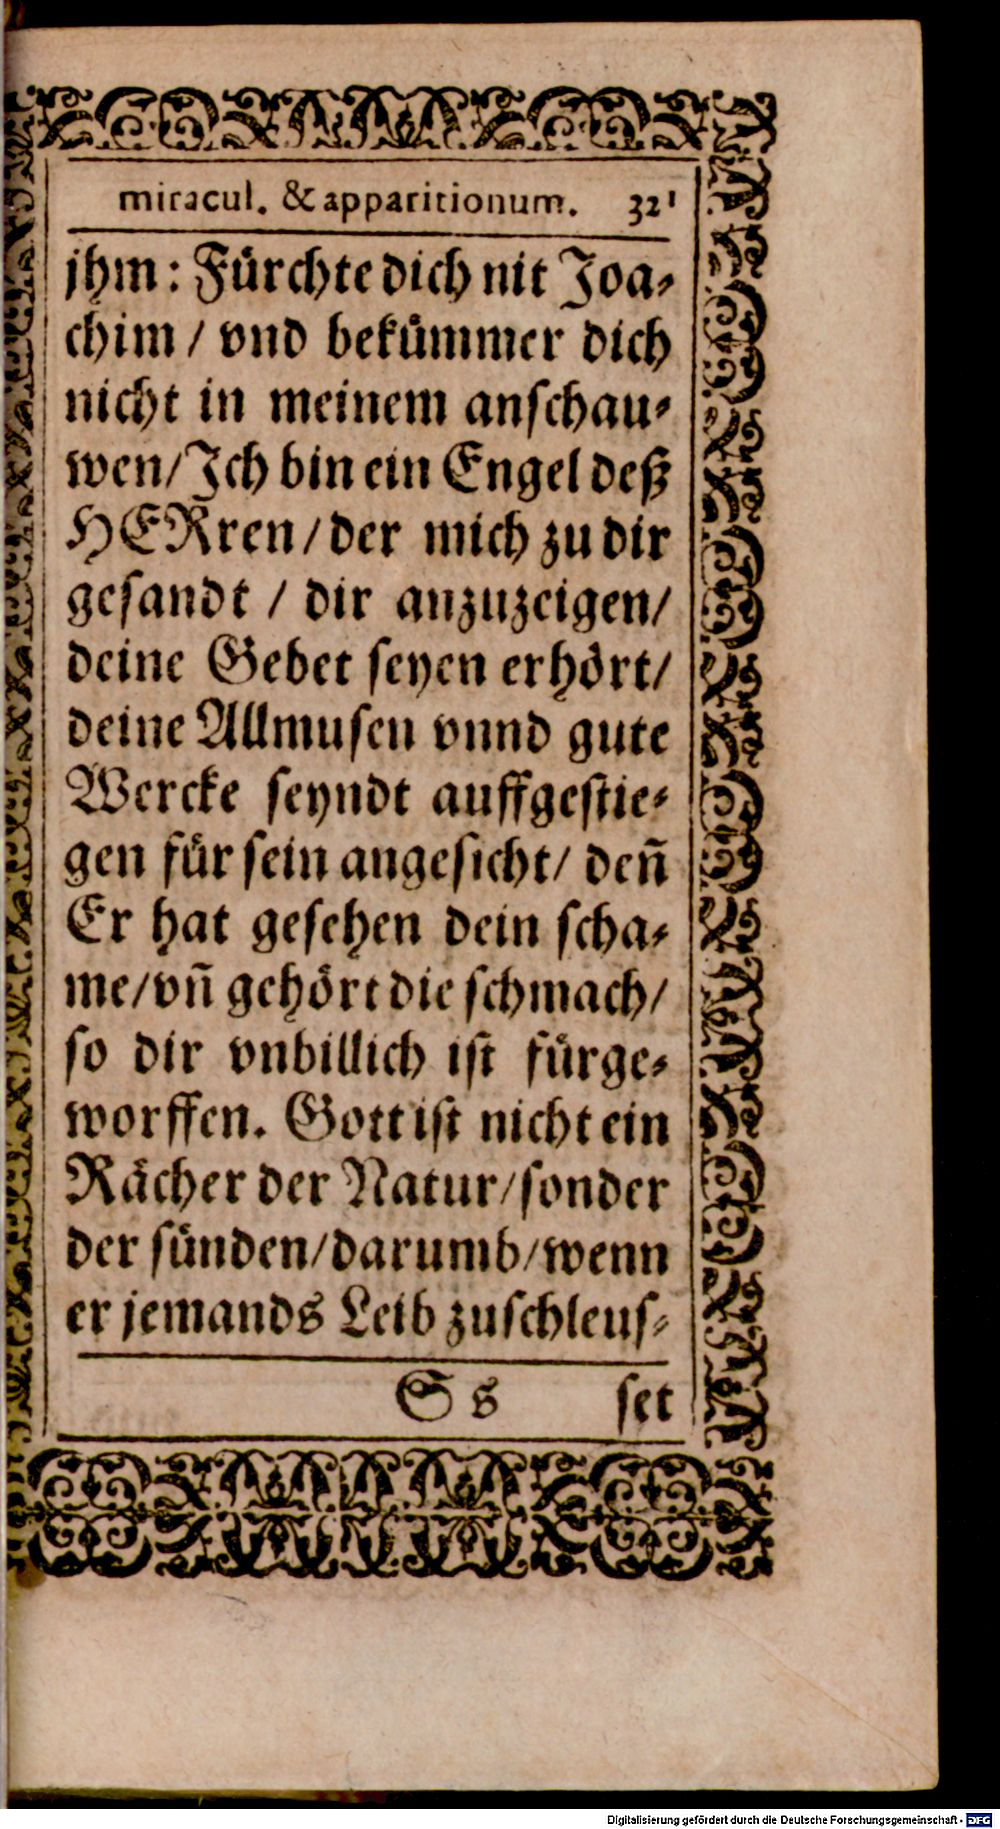 miracul. & apparitionum. 321
jhm: Fürchte dich nit Joa-
chim / vnd bekümmer dich
nicht in meinem anschau-
wen/ Ich bin ein Engel deß
HERren / der mich zu dir
gesandt / dir anzuzeigen/
deine Gebet seyen erhört/
deine Allmusen vnnd gute
Wercke seyndt auffgestie-
gen für sein angesicht/ deñ
Er hat gesehen dein scha-
me/vñ gehört die schmach/
so dir vnbillich ist fürge-
worffen. Gott ist nicht ein
Rächer der Natur/sonder
der sünden/darumb/wenn
er jemands Leib zuschleus-
S s set
Digitalisierung gefördert durch die Deutsche Forschungsgemeinschaft - DFG